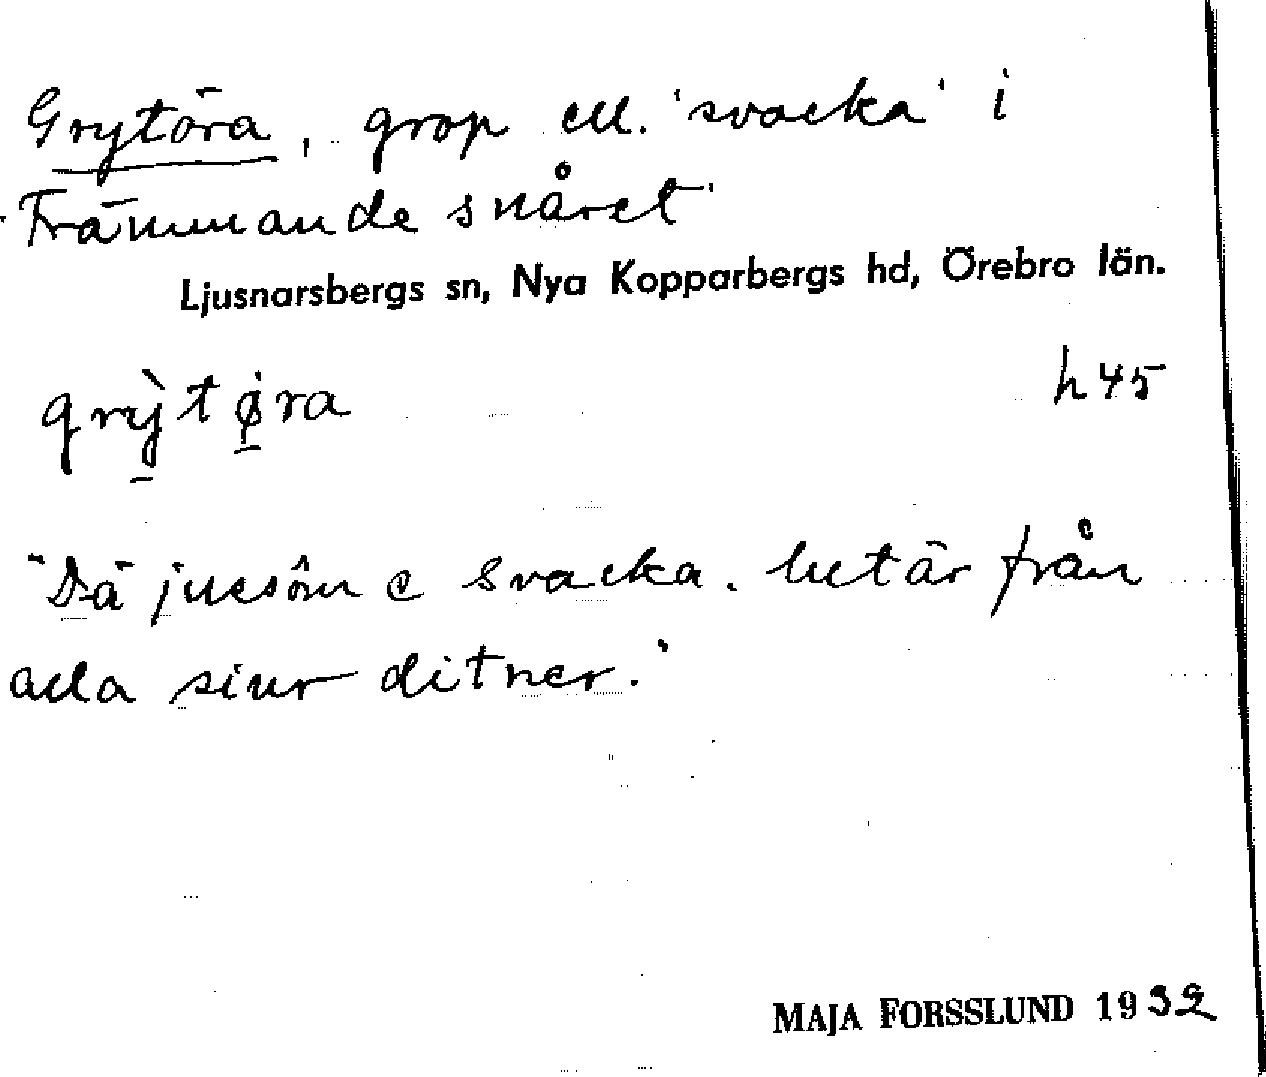 Grytöra, grop ell. 'svacka' i
'Främmande snåret'
Ljusnarsbergs sn, Nya Kopparbergs hd, Örebro län.
grỳtø̀ra h 45
"Dä jussôm e svacka. lutär från
alla siur ditner."
MAJA FORSSLUND 1932